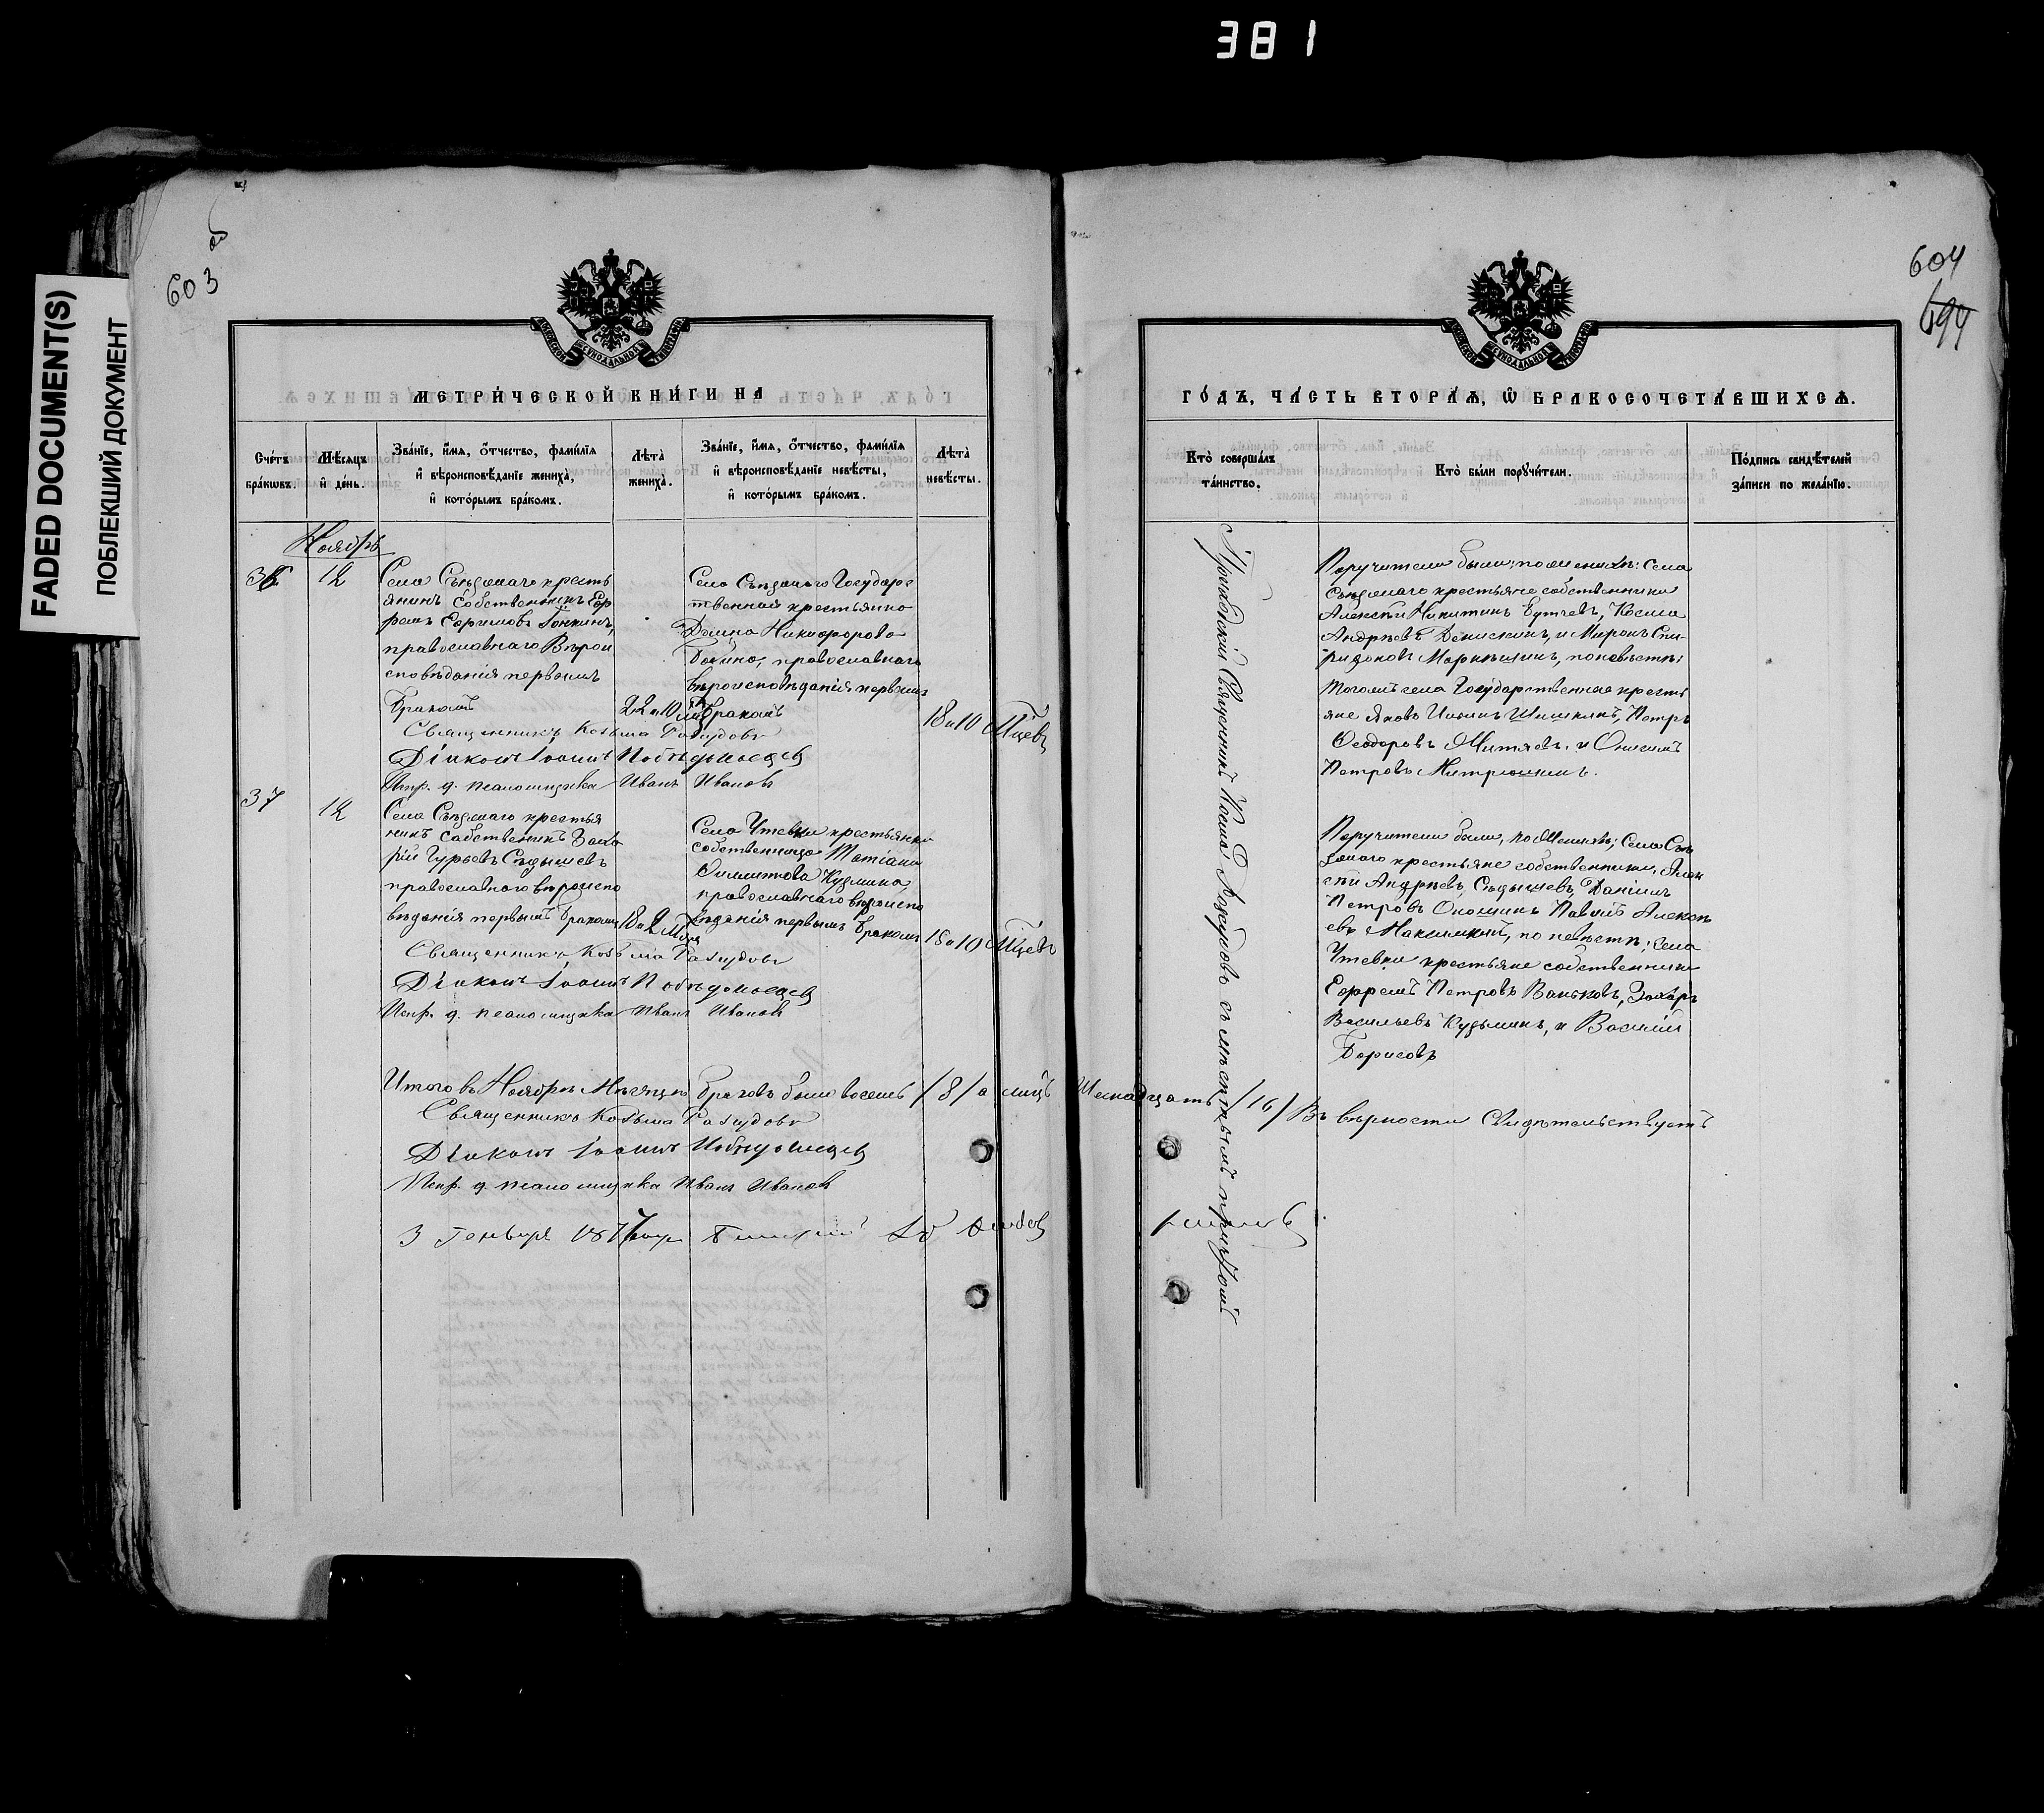 381
FADED DOCUMENT(S)
ПОБЛЕКШИЙ ДОКУМЕНТ
603
об
604
МЕТРИ́ЧЕСКОЙ КНИ́ГИ НА
Сче́тъ бра́кѡвъ.
Мѣ́сяцъ и де́нь.
Зва́нїе, и́мѧ, о́тчество, фами́лїѧ и вѣроисповѣ́данїе жениха̀, и кото́рымъ бра́комъ.
Лѣта̀ жениха̀.
Зва́нїе, и́мѧ, о́тчество, фами́лїѧ и вѣроисповѣ́данїе невѣ́сты, и кото́рымъ бра́комъ.
Лѣта̀ невѣ́сты.
Ноябрь
36
12
Села Съѣзжаго кресть
янинъ собственникъ Еф
ремъ Ефимовъ
православнаго Вѣрои
сповѣданія первымъ
бракомъ
22 и 10
Села Съѣзжаго Государс
твенная крестьянка
Домна Никифорова
православнаго
вѣроисповѣданія первымъ
бракомъ
18 и 10 М̃цевъ
Священникъ Козьма Разудовъ
Діаконъ Іоаннъ Побѣдоносцевъ
Испр. д. псаломщика Иванъ Иванов
37
12
Села Съѣзжаго крестья
нинъ собственникъ Заха
рій Гурьевъ Сѣдышевъ
православнаго вѣроиспо
вѣданія первымъ бракомъ
18 и 2
Села Утевки крестьянка
собственница Татіана
Кузмина
православнаго вѣроиспо
вѣданія первымъ бракомъ
18 и 10 М̃цевъ
Священникъ Козьма Разудовъ
Діаконъ Іоаннъ Побѣдоносцевъ
Испр. д. псаломщика Иванъ Иванов
Итого въ Ноябрѣ Мѣсяцѣ браковъ было восемь /8/ а лицъ Шеснадцать /16/ Въ вѣрности свидѣтельствуетъ
Священникъ Козьма Разудовъ
Діаконъ Іоаннъ Побѣдоносцевъ
Испр. д. псаломщика Иванъ Иванов
3 Генваря 1877 года
ГО́ДЪ, ЧА́СТЬ ВТОРА́Ѧ, Ѡ БРАКОСОЧЕТА́ВШИХСѦ.
Кто̀ соверша́лъ та́инство.
Кто̀ бы́ли пору́чители.
По́дпись свидѣ́телей за́писи по жела́нїю.
Приходскій Священникъ Косма Разудовъ съ мѣстнымъ причтомъ
Поручители были; по женихѣ: Села
Съѣзжаго крестьяне собственники
Алексѣй Никитинъ Бутчевъ, Косма
Андрѣевъ Денискинъ, и Миронъ Спи-
ридоновъ Маркѣшинъ, по невѣстѣ:
тогожъ села Государственные кресть
яне Яковъ Ильинъ Шишкинъ, Петръ
Ѳеодоровъ Митяевъ, и Онисимъ
Петровъ Митрюшинъ.
Поручители были, по Женихѣ; Села Съѣ
зжаго крестьяне собственники, Алек
сѣй Андрѣевъ Сѣдышевъ, Даніилъ
Петровъ Оношинъ Павелъ Алексѣ
евъ по невѣстѣ; села
Утевки крестьяне собственники
Ефремъ Петровъ Ваньковъ, Захаръ
Васильевъ Кузьминъ, и Василій
Борисовъ